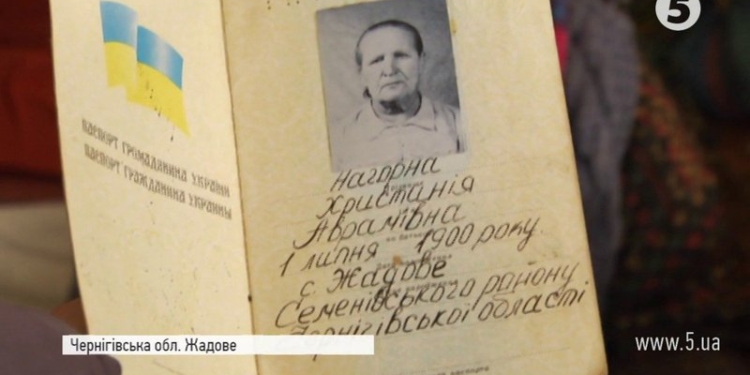 5
ПАСПОРТ ГРОМАДЯНИНА УКРАЇНИ
ПАСПОРТ ГРАЖДАНИНА УКРАИНЫ
Нагорна
Христанія
Аврамівна
1 липня 1900 року.
с. Жадове
Семенівського району
Чернігівської області
Чернігівська обл. Жадове
www.5.ua